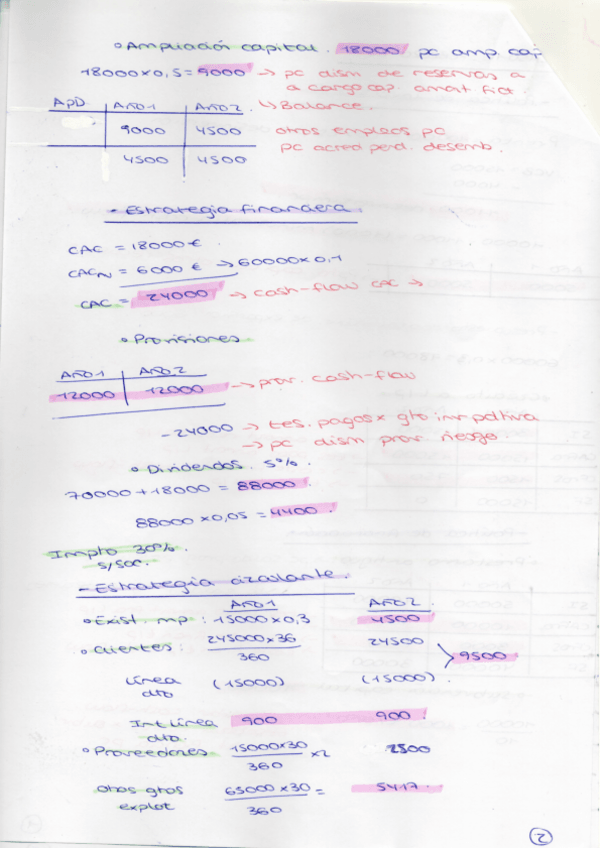 ° Ampliación capital. 18000 pc amp. cap.
18000 x 0,5 = 9000 → pc dism de reservas a
a cargo cap. amort. fict.
APD. Año 1 Año 2. ↳ Balance.
9000 4500 otros empleos pc
4500 4500 pc acred pend. desemb.
- Estrategia financiera.
CAC = 18000 €.
CACN = 6000 € → 60000 x 0,1
CAC = 24000 → cash-flow CAC →
° Provisiones
Año 1 Año 2
12000 12000 → prov. cash-flow
- 24000 → tes. pagos x gto.
→ pc dism prov riesgo.
° Dividendos. 5%.
70000 + 18000 = 88000
88000 x 0,05 = 4400.
Impto 30%.
s/soc.
- Estrategia circulante.
Año 1 Año 2
° Exist. mp: 15000 x 0,3 4500
° Clientes: 245000 x 36 24500
360 9500
Línea (15000) (15000).
dto
Int Línea 900 900.
dto.
° Proveedores 15000 x 30 x 2 2500
360
Otros gtos 65000 x 30 = 5417.
explot 360
2